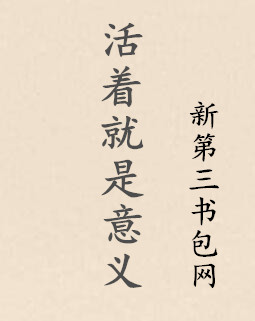 活着就是意义
新第三书包网